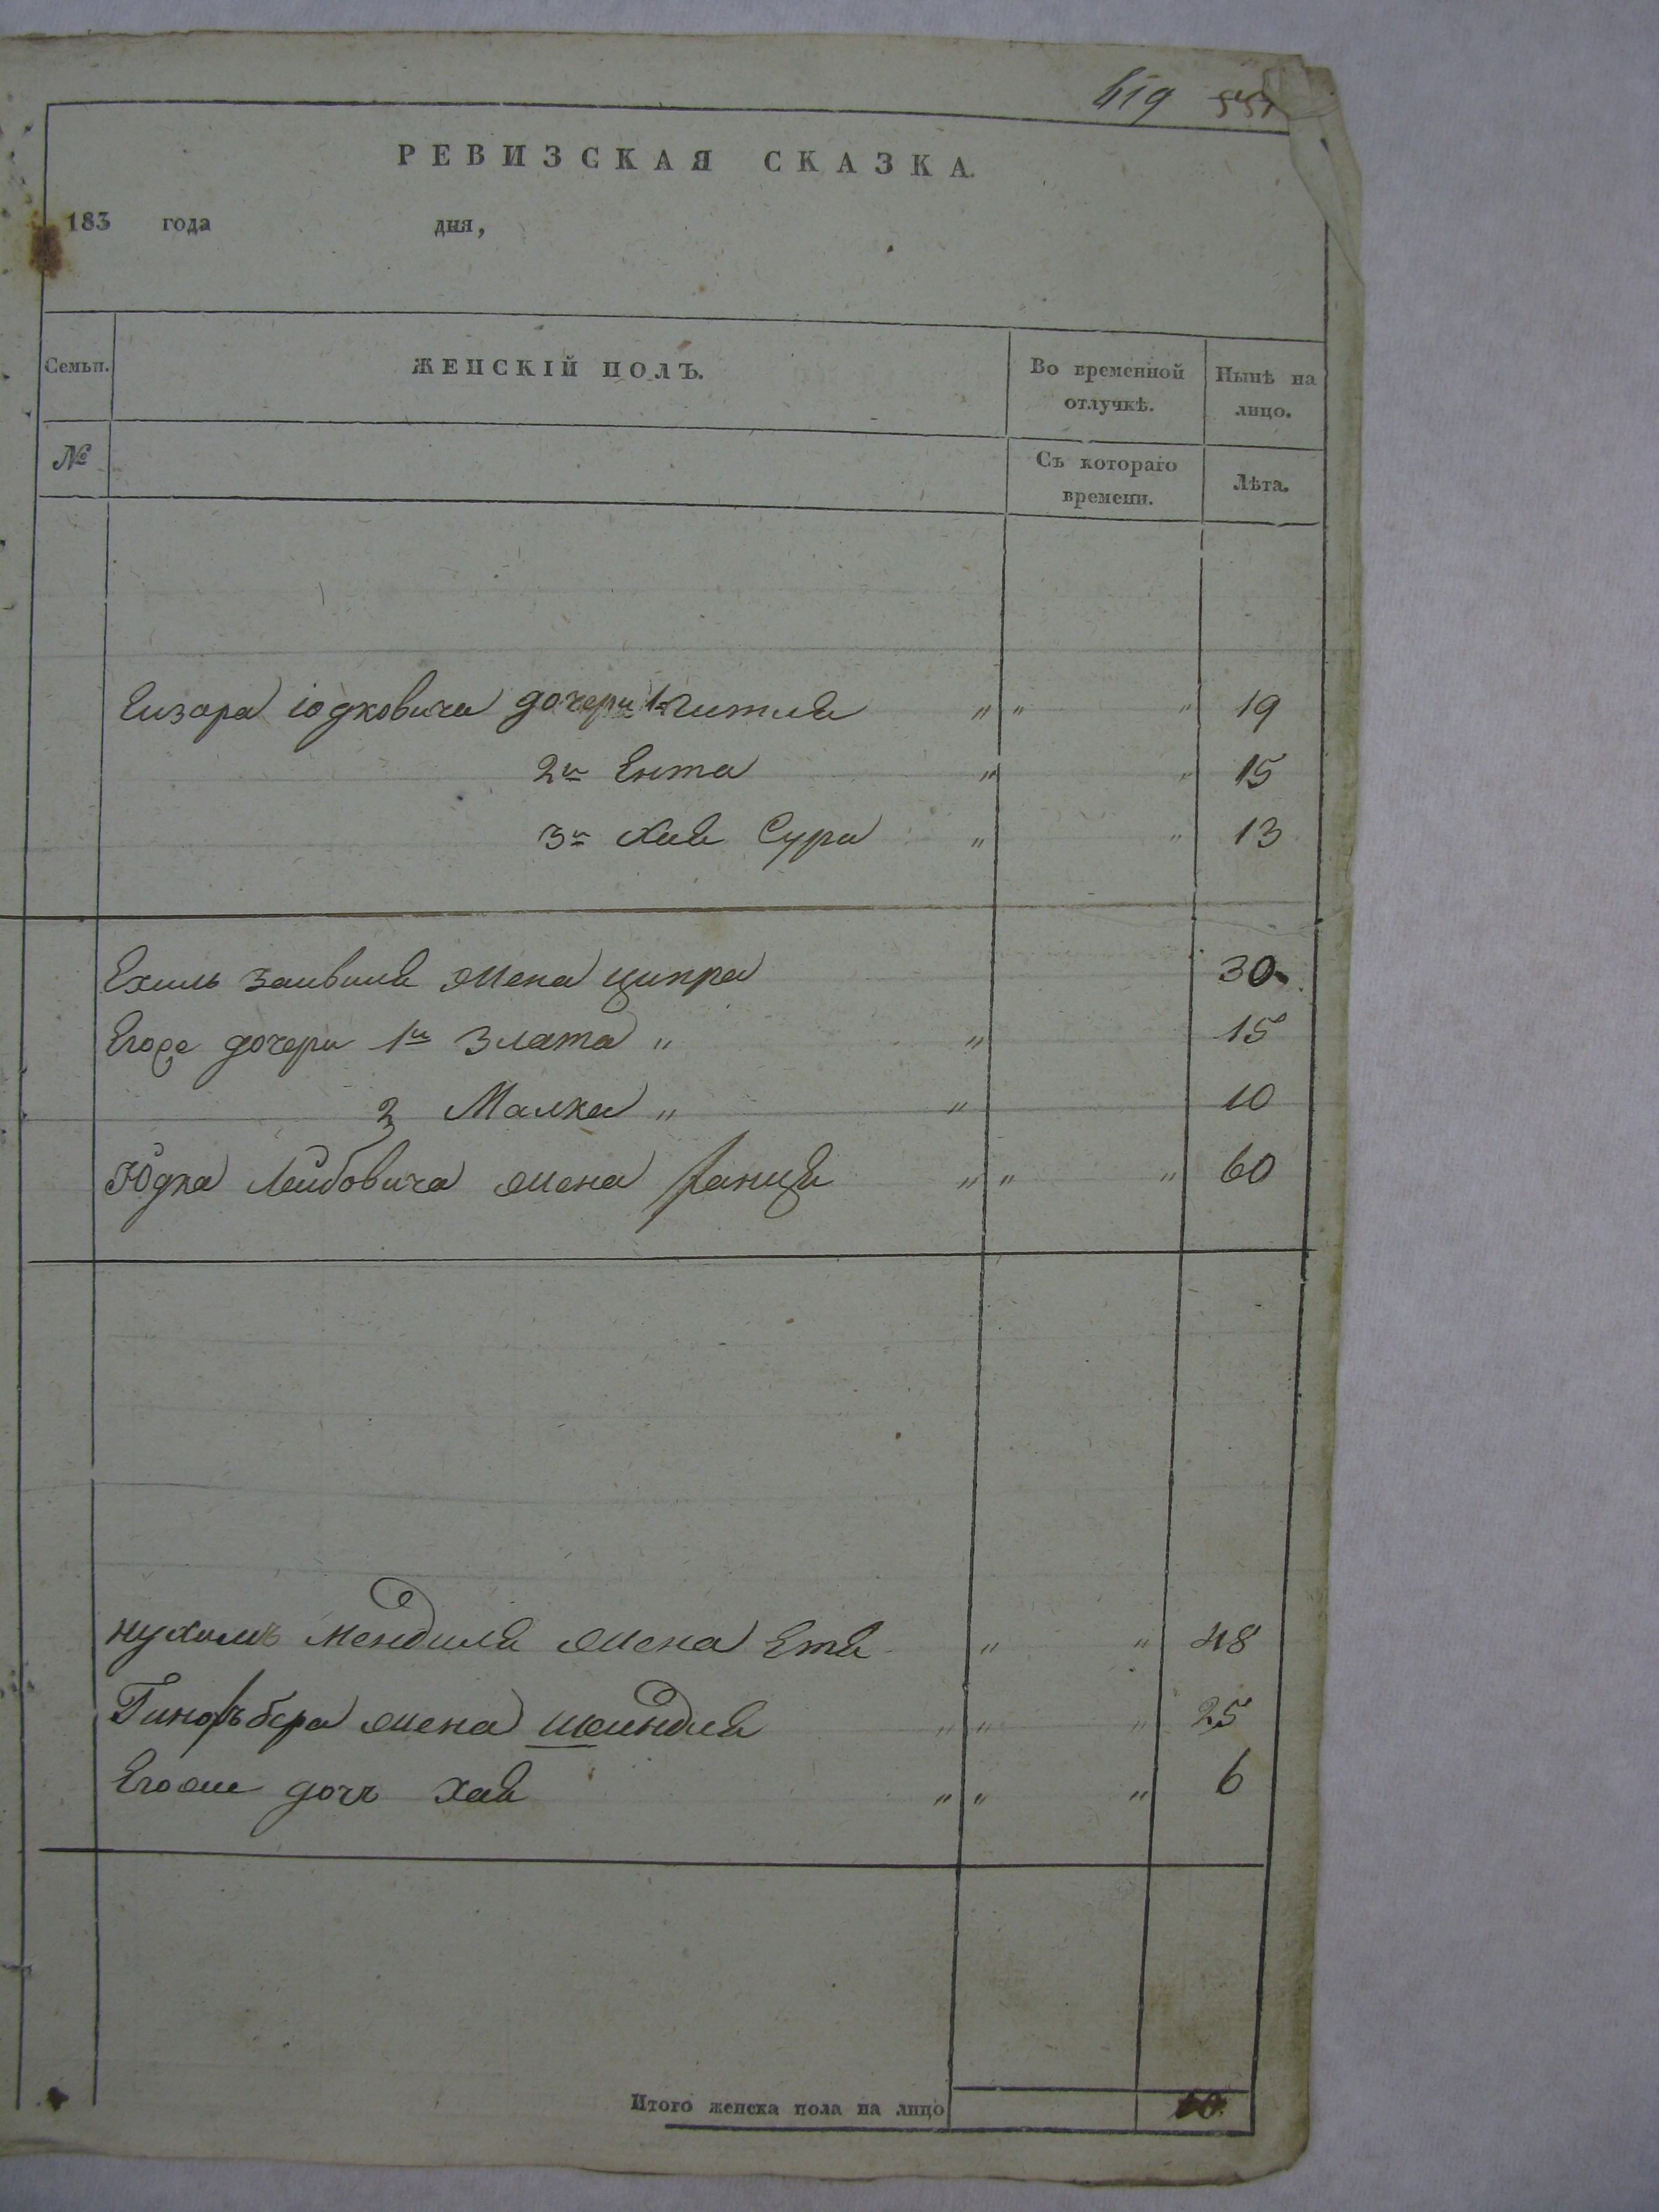 419 557
РЕВИЗСКАЯ СКАЗКА.
183 года дня,
Семьи. ЖЕНСКІЙ ПОЛЪ. Во временной отлучкѣ. Нынѣ на лицо.
№ Съ котораго времени. Лѣта.
Еизара Іодковича дочери 1я Гитля " " " 19
2я Ента " " 15
3я Хая Сура " " 13
Ехиль Заивиля жена ципра 30
Егоже дочери 1я Злата " " 15
2 Малка " " 10
Юдка Леибовича жена " " " 60
Нухимъ Мендиля жена Етя " " 48
бера жена шеиндля " " " 25
Егоже дочь Хая " " " 6
Итого женска пола на лицо 10.